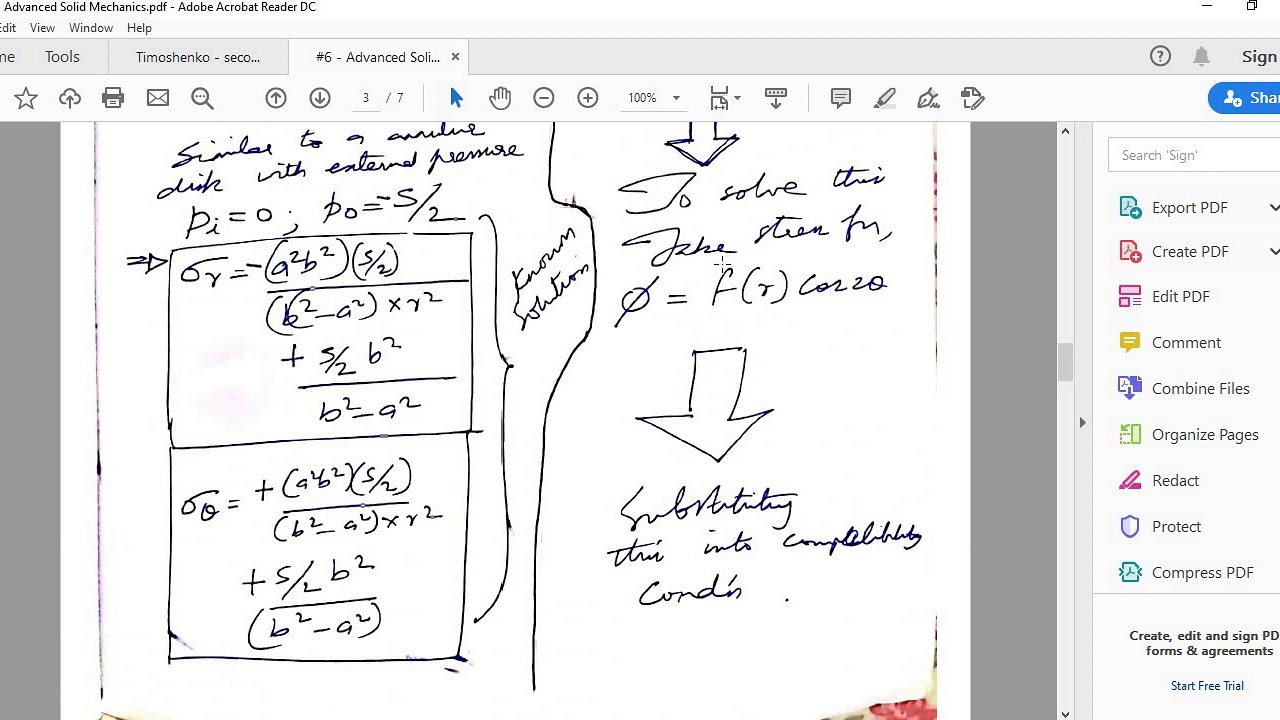 Advanced Solid Mechanics.pdf - Adobe Acrobat Reader DC
Edit View Window Help
me Tools Timoshenko - seco... #6 - Advanced Soli... ×
3 / 7 100% Sign
Shar
Similar to a annular
disk with external pressure
pi = 0 ; po = -S/2
⇒ σr = -(a²b²)(S/2)
(b² - a²) × r²
+ S/2 b²
b² - a²
σθ = +(a²b²)(S/2)
(b² - a²) × r²
+ S/2 b²
(b² - a²)
Known
solution
To solve this
Take stress fn,
ϕ = f(r) cos2θ
Substituting
this into compatibility
Condn .
Search 'Sign'
Export PDF
Create PDF
Edit PDF
Comment
Combine Files
Organize Pages
Redact
Protect
Compress PDF
Create, edit and sign PD
forms & agreements
Start Free Trial